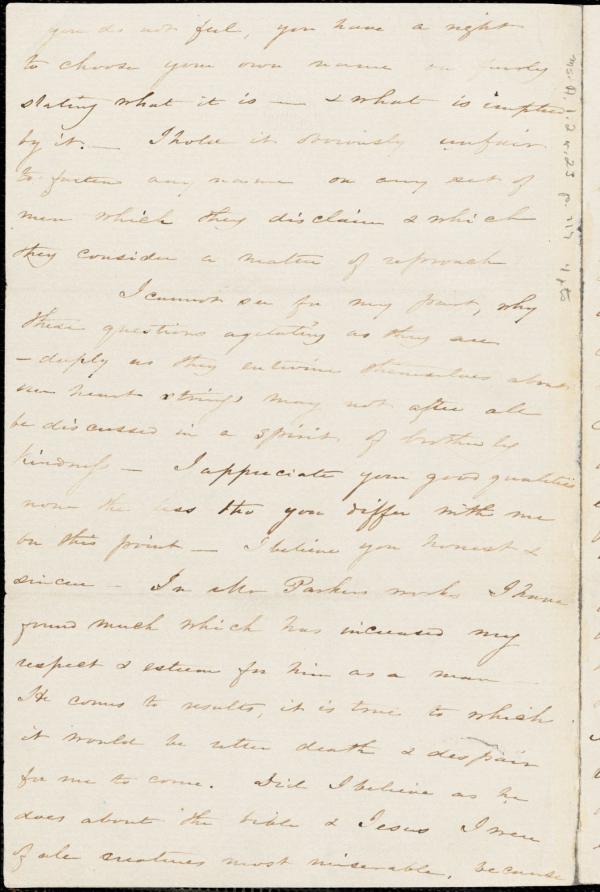 you do not feel, you have a right
to choose your own name on fairly
stating what it is — & what is implied
by it. — I hold it obviously unfair
to fasten any name on any set of
men which they disclaim & which
they consider a matter of reproach
I cannot see for my part, why
these questions agitating as they are
— deeply as they entwine themselves about
our heart strings may not after all
be discussed in a spirit of brotherly
kindness — I appreciate your good qualities
none the less tho you differ with me
on this point — I believe you honest &
sincere — In Mr Parkers works I have
found much which has increased my
respect & esteem for him as a man —
He comes to results, it is true to which
it would be utter death & despair
for me to come. Did I believe as he
does about the bible & Jesus I were
of all creatures most miserable, because
Ms. A. 1. 2 v. 23 p. 117